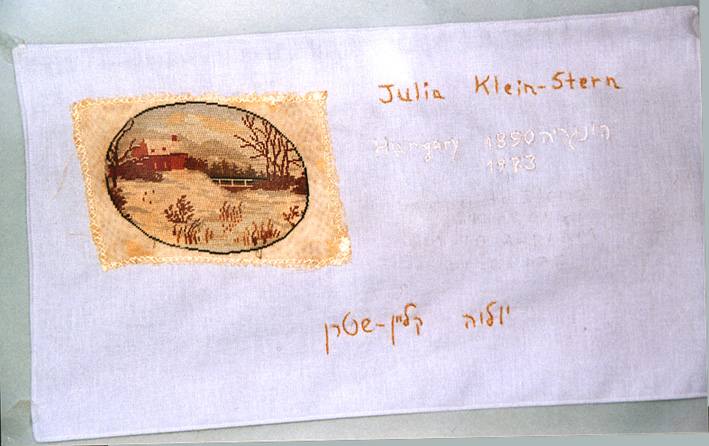 Julia Klein-Stern
Hungary 1890 הינגריה
1973
יוליה קליין-שטרן